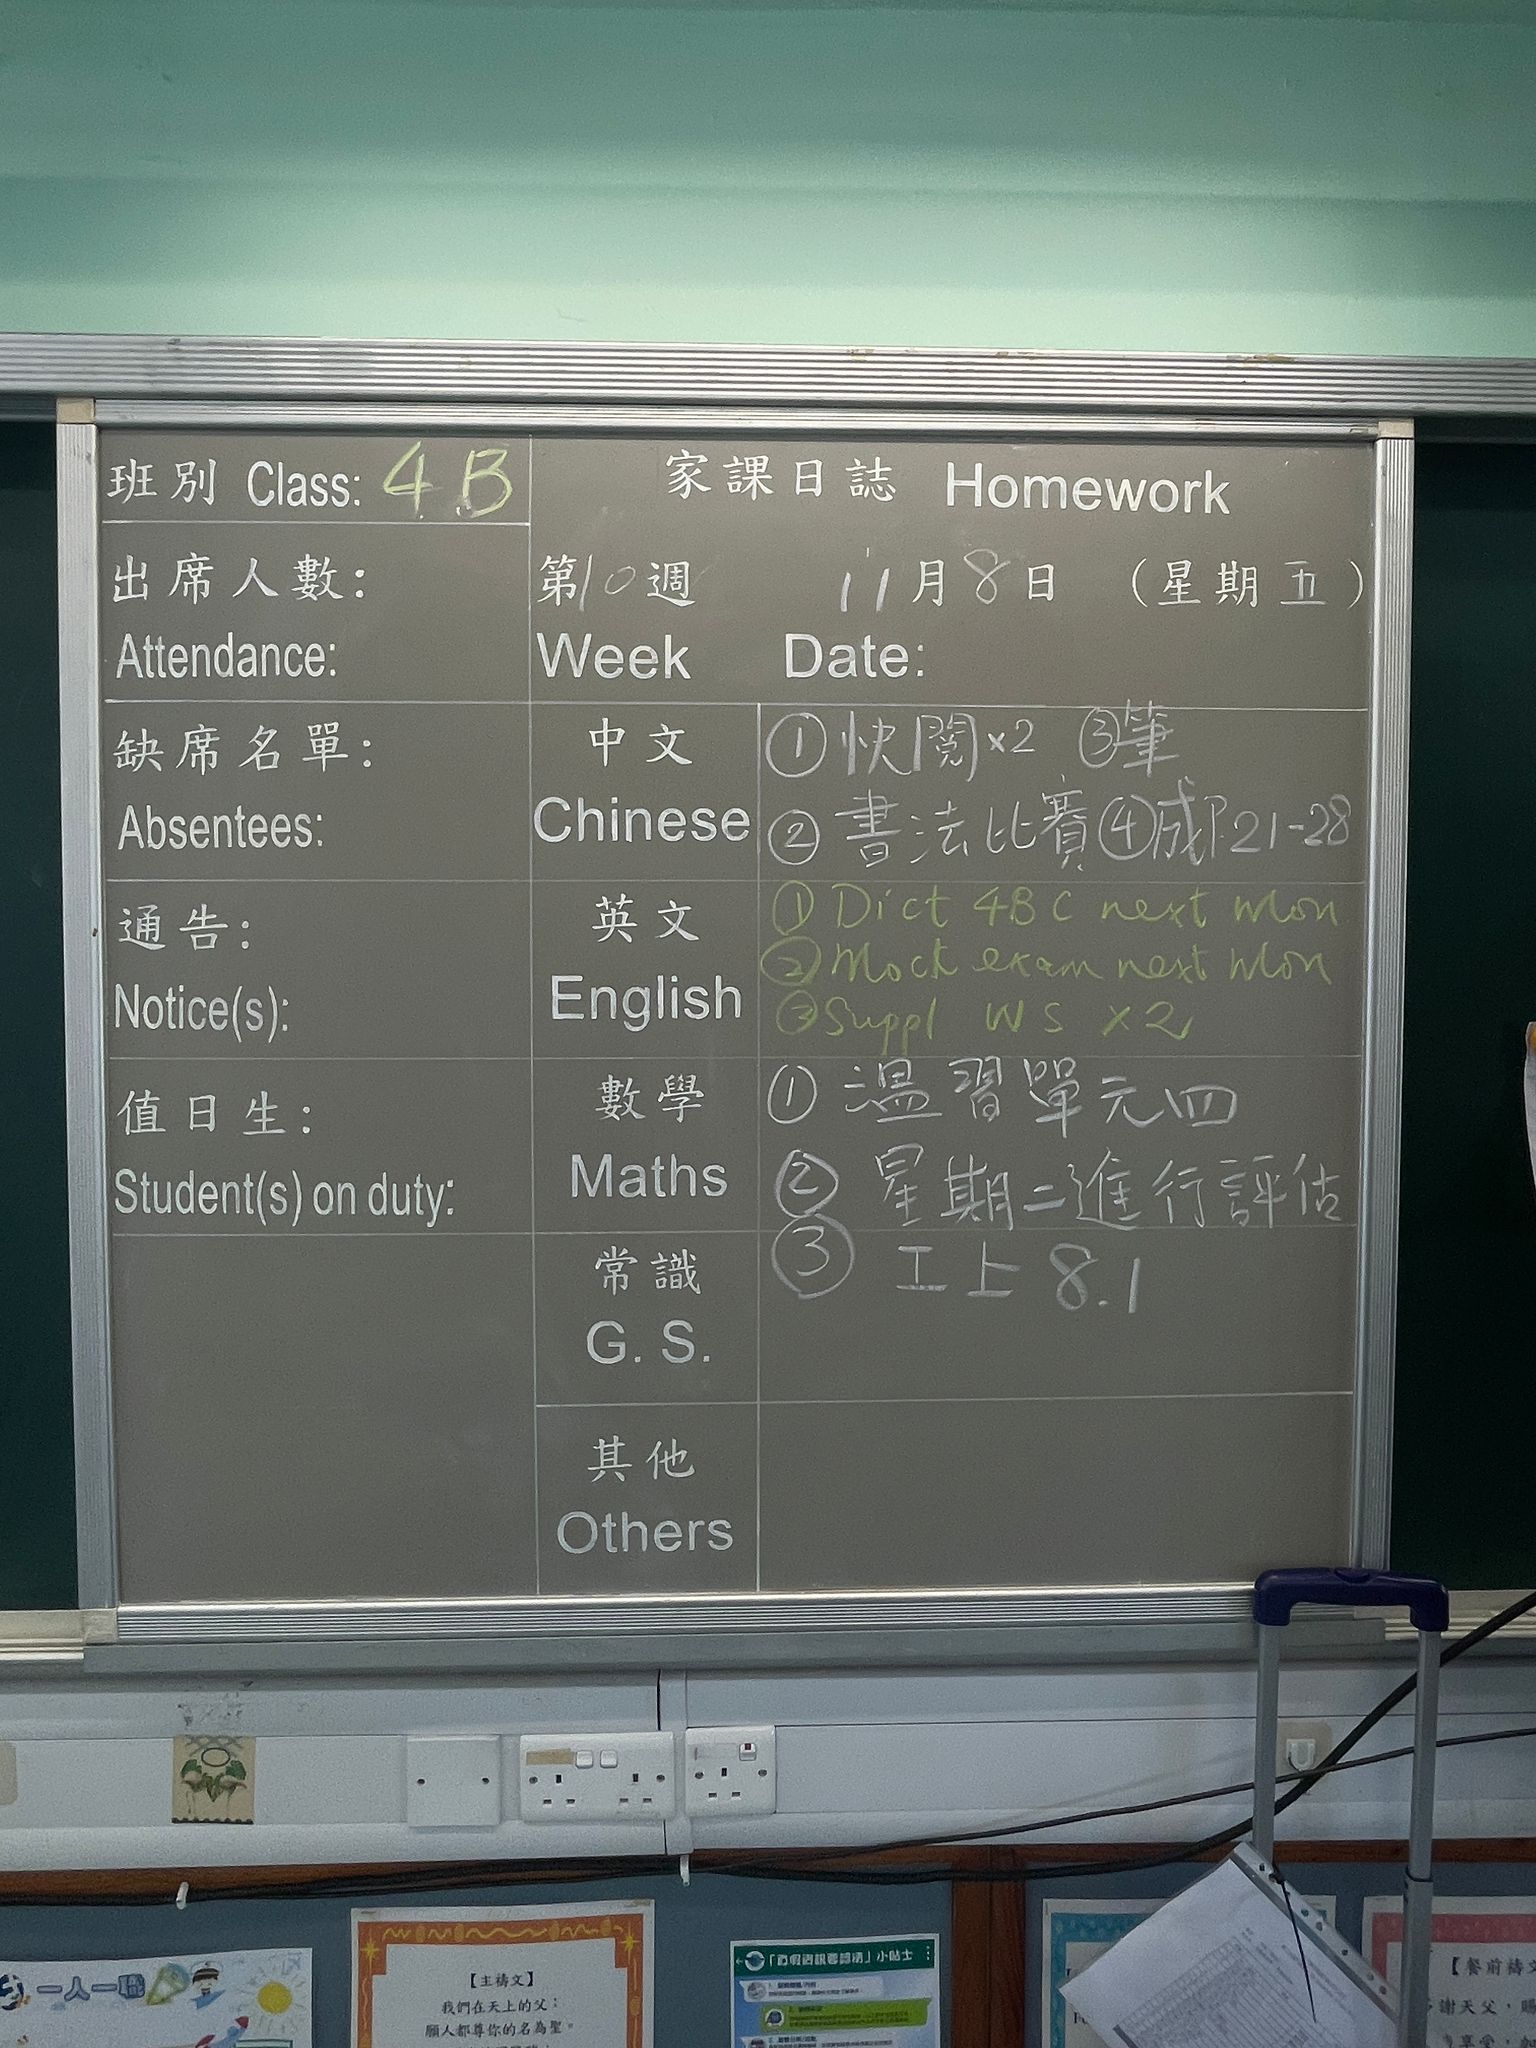 班別 Class: 4B
家課日誌 Homework
出席人數:
Attendance:
第10週 11月8日 (星期五)
Week Date:
缺席名單:
Absentees:
中文
Chinese
①快閱×2 ③筆
②書法比賽④成P.21-28
通告:
Notice(s):
英文
English
①Dict 4BC next Mon
②Mock exam next Mon
③Suppl WS ×2
值日生:
Student(s) on duty:
數學
Maths
①溫習單元四
②星期二進行評估
③工上8.1
常識
G. S.
其他
Others
一人一職
【主禱文】
我們在天上的父:
願人都尊你的名為聖。
小貼士
【餐前禱文
謝天父,